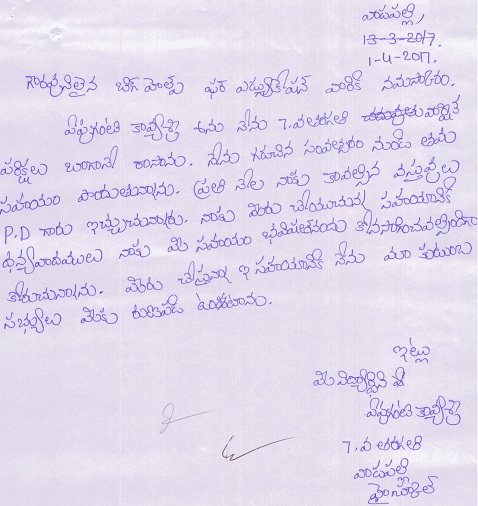 వాడపల్లి,
13-3-2017.
1-4-2017.
గౌరవనీలైన బిగ్ హెల్ప్ ఫర్ ఎడ్యుకేషన్ వారికి నమస్కారం.
ఏపుగంటి కావ్యశ్రీ అను నేను 7.వ తరగతి చదువుతు వార్షిక
పరీక్షలు బాగానే రాసాను. నేను గడచిన సంవత్సరం నుండి తమ
సహాయం పొందుతున్నాను. ప్రతి నెల నాకు కావల్సిన వస్తువులు
P.D గారు ఇచ్చుచున్నారు. నాకు మీరు చేయుచున్న సహయానికి
ధన్యవాదములు నాకు మీ సహాయం భవిషత్‌నందు కోనసాగించవల్సిందిగా
కోరుచున్నాను. మీరు చేస్తున్నా ఇ సహయానికి నేను మా కుటుంబ
సభ్యులు మీకు రుణపడి ఉంటాము.
ఇట్లు
మీ విద్యార్ధిని
ఏపుగంటి కావ్యశ్రీ
7.వ తరగతి
వాడపల్లి
హైస్కూల్